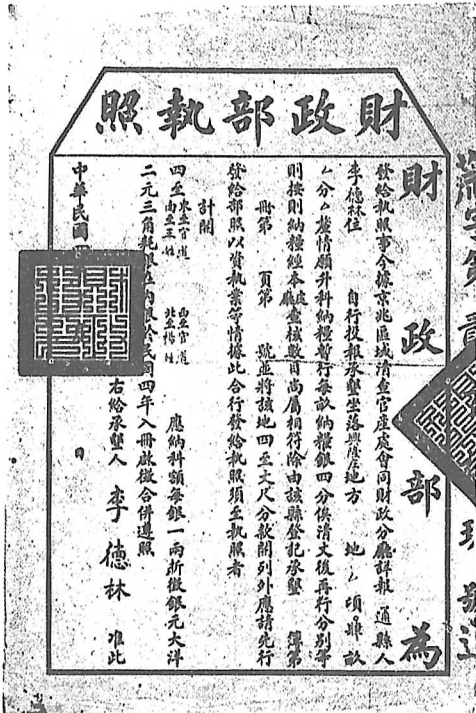 財政部執照
財政部為
發給執照事今據京兆區域清查官產處會同財政分廳詳報通縣人
李德林住 自行投報承墾坐落興隆庄地方 地 頃 畝
分 釐情願升科納糧暫行每畝納糧銀四分俟清丈後再行分別等
則按則納糧經本處廳查核數目尚屬相符除由該縣登記承墾 簿第
冊第 頁第 號並將該地四至丈尺分款開列外應請先行
發給部照以資執業等情據此合行發給執照須至執照者
計開
四至 東至官道 南至王姓 西至官道 北至楊姓 應納科額每銀一兩折徵銀元大洋
二元三角耗羨在內限於民國四年入冊啟徵合併遵照
右給承墾人 李德林 准此
中華民國四
日